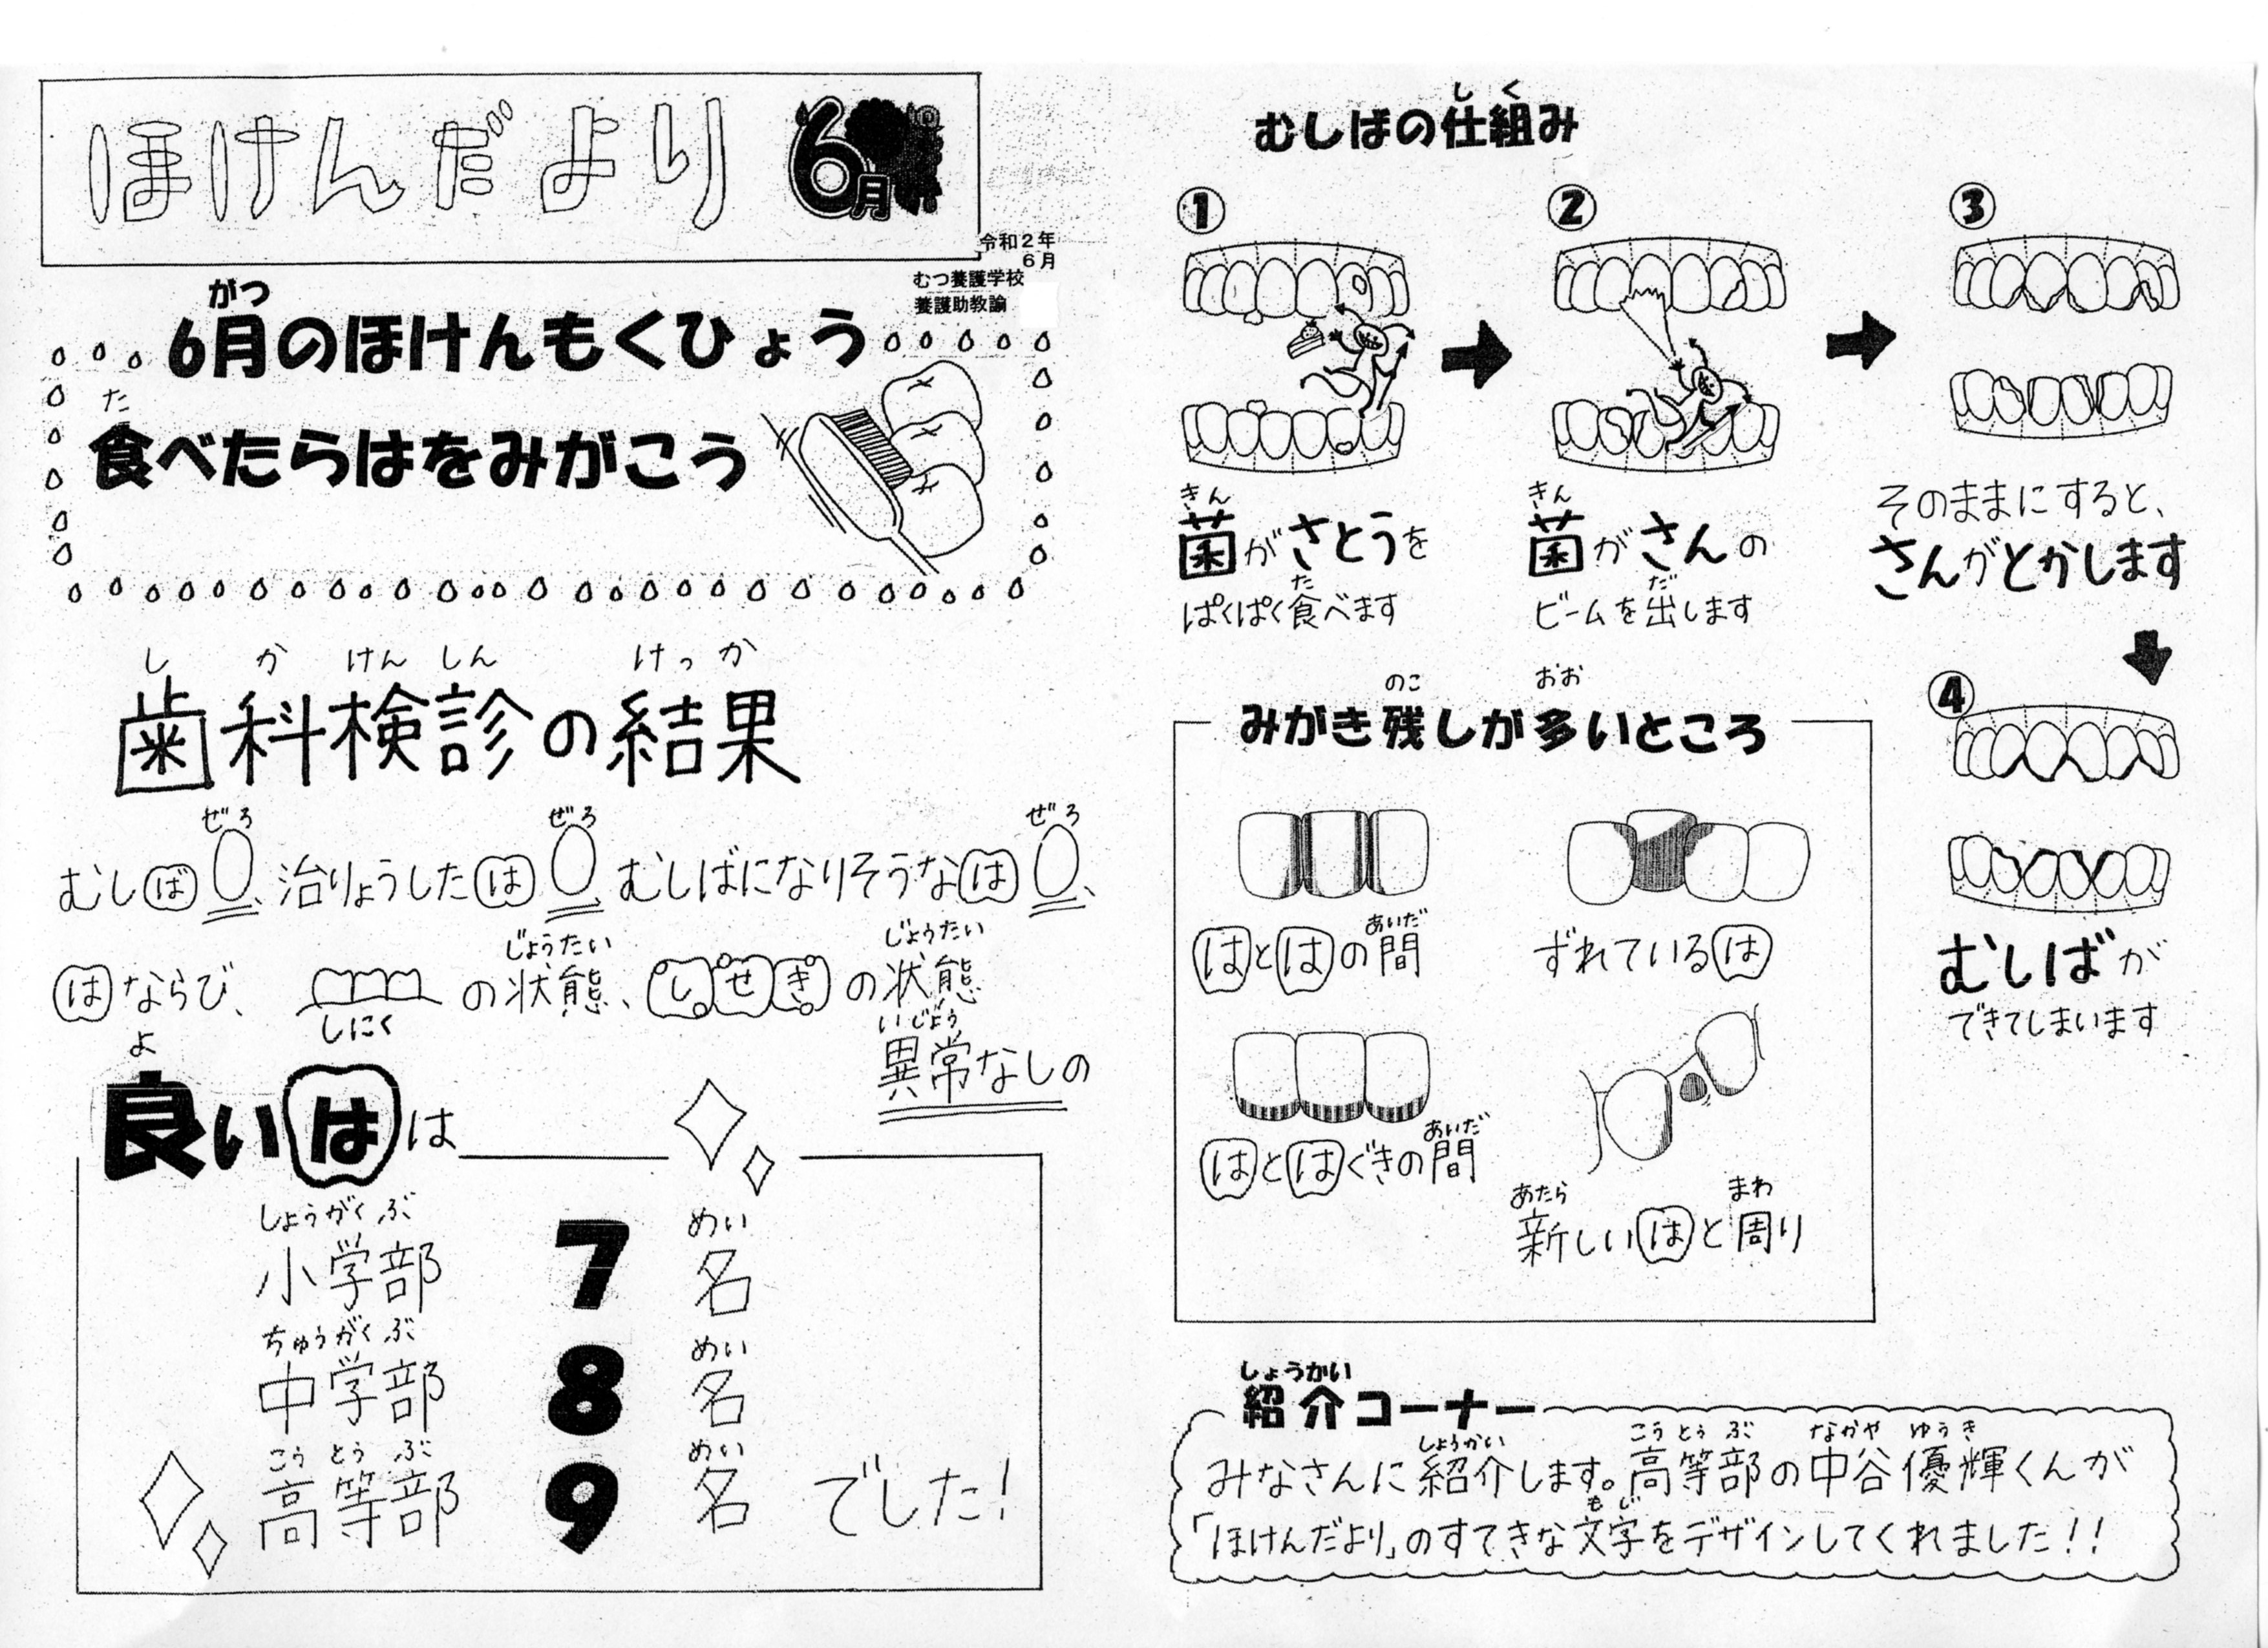 ほけんだより 6月
令和2年
6月
むつ養護学校
養護助教諭
がつ
6月のほけんもくひょう
た
食べたらはをみがこう
し か けん しん けっ か
歯科検診の結果
ぜろ ぜろ ぜろ
むしば0、治りょうしたは0、むしばになりそうなは0、
じょうたい じょうたい
はならび、しにくの状態、しせきの状態
いじょう
異常なしの
よ
良いはは
しょうがくぶ めい
小学部 7 名
ちゅうがくぶ めい
中学部 8 名
こうとうぶ めい
高等部 9 名 でした!
し く
むしばの仕組み
①
きん
菌がさとうを
た
ぱくぱく食べます
②
きん
菌がさんの
だ
ビームを出します
③
そのままにすると、
さんがとかします
④
むしばが
できてしまいます
のこ おお
みがき残しが多いところ
あいだ
はとはの間
ずれているは
あいだ
はとはぐきの間
あたら まわ
新しいはと周り
しょうかい
紹介コーナー
しょうかい こうとうぶ なかや ゆうき
みなさんに紹介します。高等部の中谷優輝くんが
もじ
「ほけんだより」のすてきな文字をデザインしてくれました!!